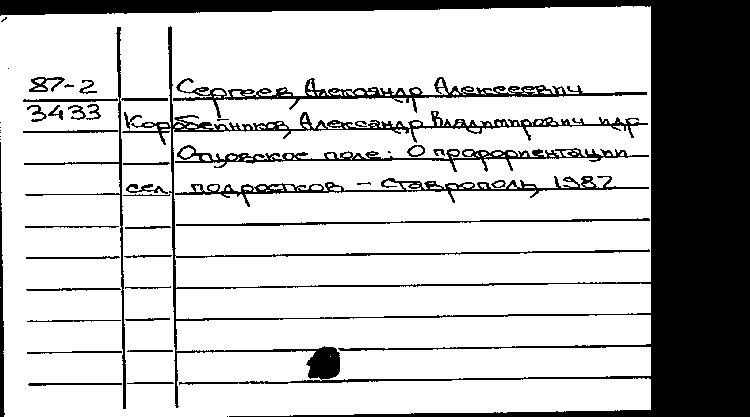 87-2 Сергеев, Александр Алексеевич
3433 Коробейников, Александр Владимирович и др
Отцовское поле: О профориентации
сел. подростков - Ставрополь, 1987